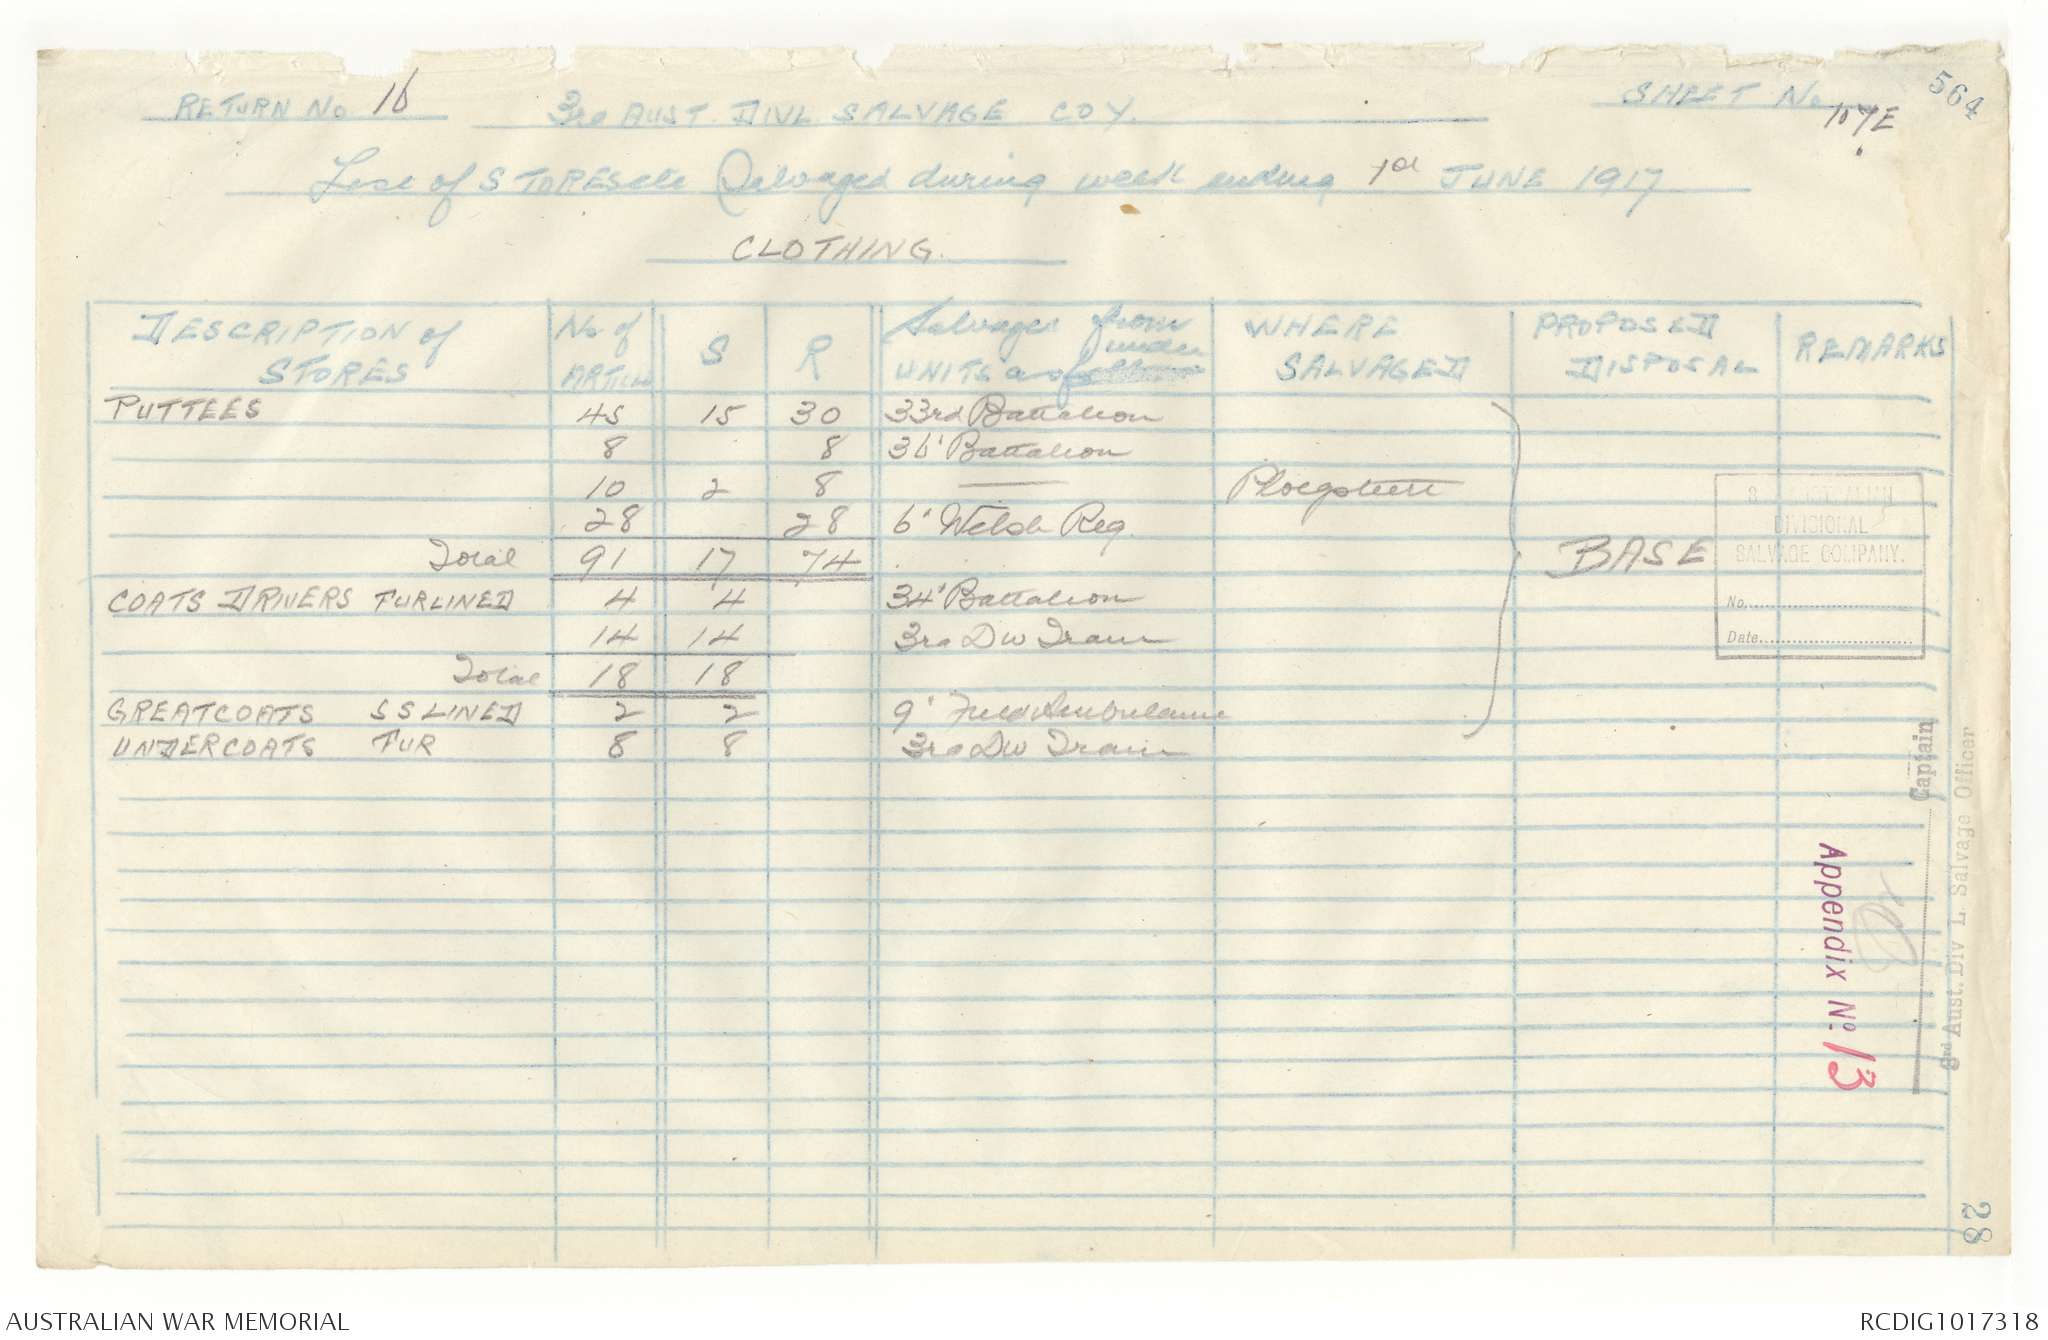 564
RETURN No 16 3rd AUST. DIVL. SALVAGE COY. SHEET No 107E
List of STORES etc Salvaged during week ending 1st JUNE 1917
CLOTHING.
DESCRIPTION of STORES No of ARTICLES S R Salvaged from UNITS as under WHERE SALVAGED PROPOSED DISPOSAL REMARKS
PUTTEES 45 15 30 33rd Battalion
8 8 36' Battalion
10 2 8 ——— Ploegsteert
28 28 6' Welsh Reg.
Total 91 17 74
BASE
COATS DRIVERS FURLINED 4 4 34' Battalion
14 14 3rd Div Train
Total 18 18
GREATCOATS S S LINED 2 2 9' Field Ambulance
UNDERCOATS FUR 8 8 3rd Div Train
3rd AUSTRALIAN
DIVISIONAL
SALVAGE COMPANY.
No.
Date
Captain
3rd Aust. Div L Salvage Officer
Appendix No. 13
28
AUSTRALIAN WAR MEMORIAL RCDIG1017318